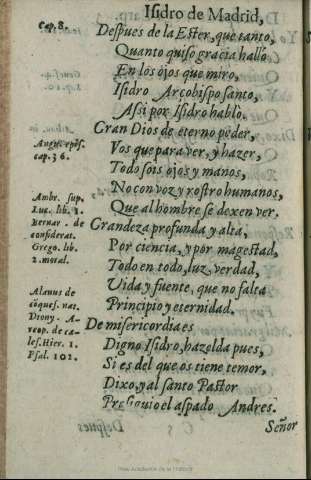 Isidro de Madrid,
Cap. 8.
Despues de la Ester, que tanto,
Quanto quiso gracia hallo
En los ojos que miro,
Isidro Arçobispo santo,
Assi por Isidro hablo.
Gran Dios de eterno poder,
Augu. epis. cap. 36.
Vos que para ver, y hazer,
Todo sois ojos y manos,
No con voz y rostro humanos,
Ambr. sup.
Luc. lib. 1.
Que al hombre se dexen ver.
Bernar. de
considerat.
Grandeza profunda y alta,
Grego. lib.
2. moral.
Por ciencia, y por magestad,
Todo en todo, luz, verdad,
Vida y fuente, que no falta
Alanus de
Principio y eternidad.
Diony. A-
reop. de ca-
De misericordia es
les. Hier. 1.
Digno Isidro, hazelda pues,
Psal. 102.
Si es del que os tiene temor,
Dixo, y al santo Pastor
Presiguio el aspado Andres.
Señor